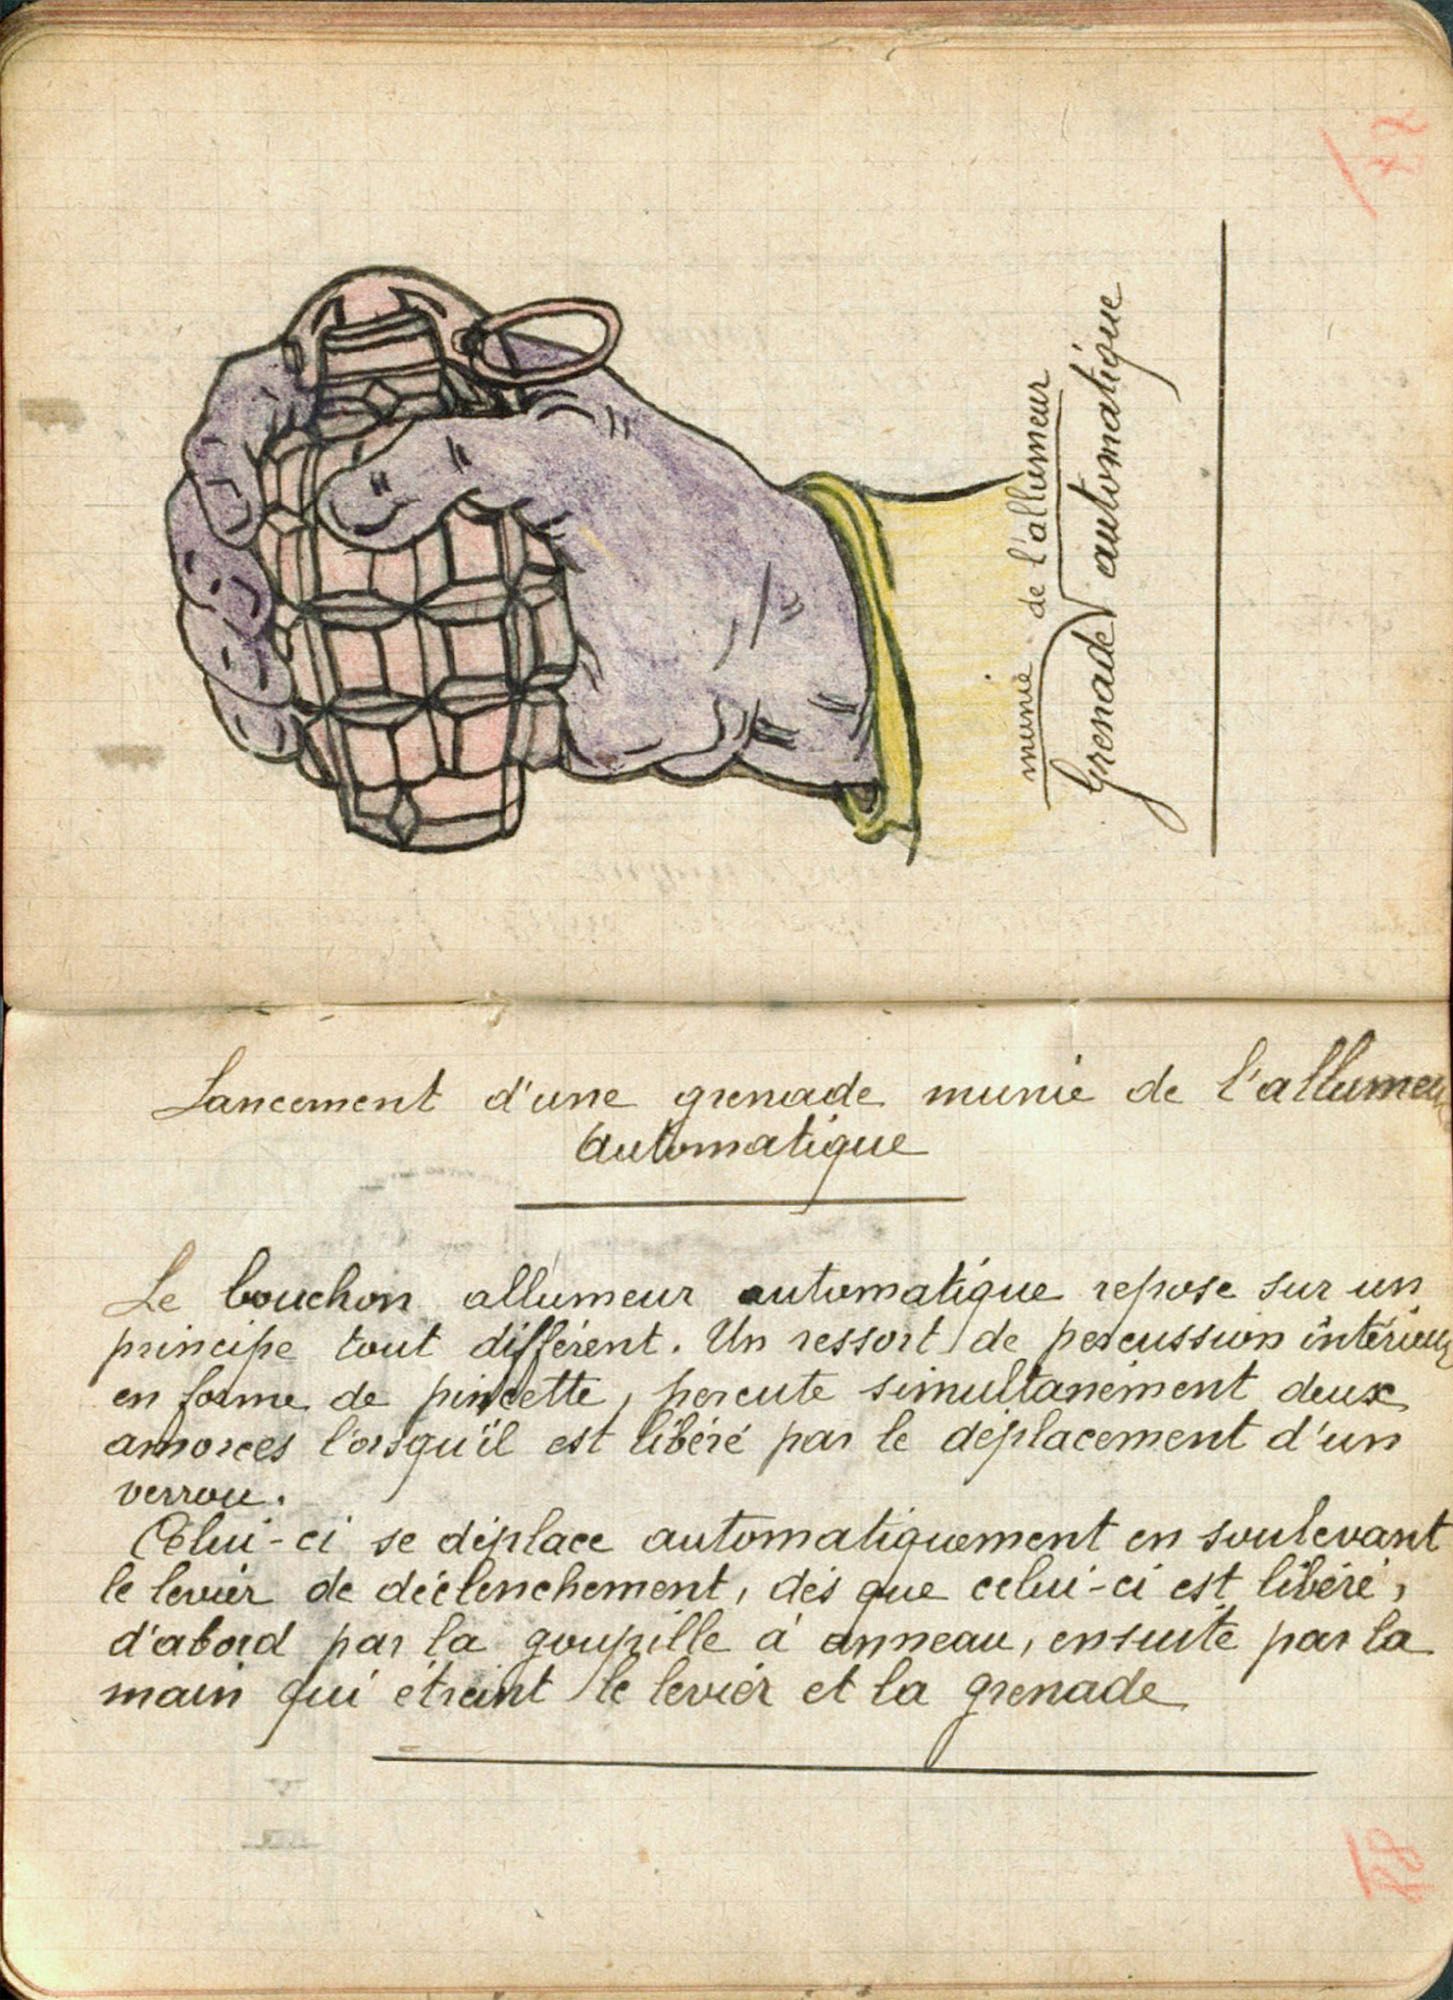 munie de l'allumeur
Grenade automatique
Lancement d'une grenade munie de l'allumeur
Automatique
Le bouchon allumeur automatique repose sur un
principe tout différent. Un ressort de percussion intérieur
en forme de pincette, percute simultanément deux
amorces lorsqu'il est libéré par le déplacement d'un
verrou.
Celui-ci se déplace automatiquement en soulevant
le levier de déclenchement, dès que celui-ci est libéré,
d'abord par la goupille à anneau, ensuite par la
main qui étreint le levier et la grenade